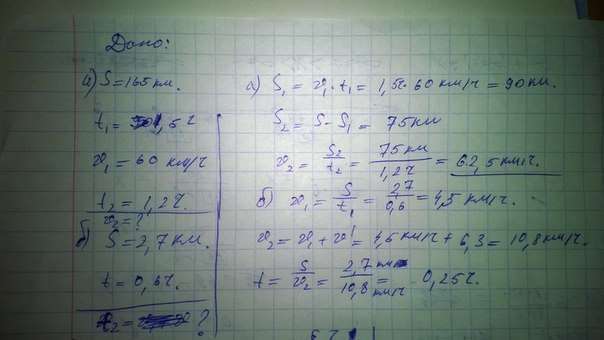 Дано:
а) S = 165 км.
t₁ = 1,5 ч
v₁ = 60 км/ч
t₂ = 1,2 ч.
v₂ = ?
б) S = 2,7 км.
t = 0,6 ч.
t₂ = ?
а) S₁ = v₁ · t₁ = 1,5ч · 60 км/ч = 90 км.
S₂ = S - S₁ = 75 км
v₂ = S₂/t₂ = 75 км/1,2ч = 62,5 км/ч.
б) v₁ = S/t₁ = 2,7/0,6 = 4,5 км/ч.
v₂ = v₁ + v' = 4,5 км/ч + 6,3 = 10,8 км/ч.
t = S/v₂ = 2,7 км/10,8 км/ч = 0,25 ч.